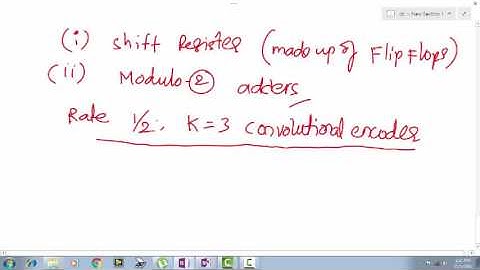 (i) Shift Register (made up of Flip Flops)
(ii) Modulo-2 adders
Rate 1/2, K=3 Convolutional encoder